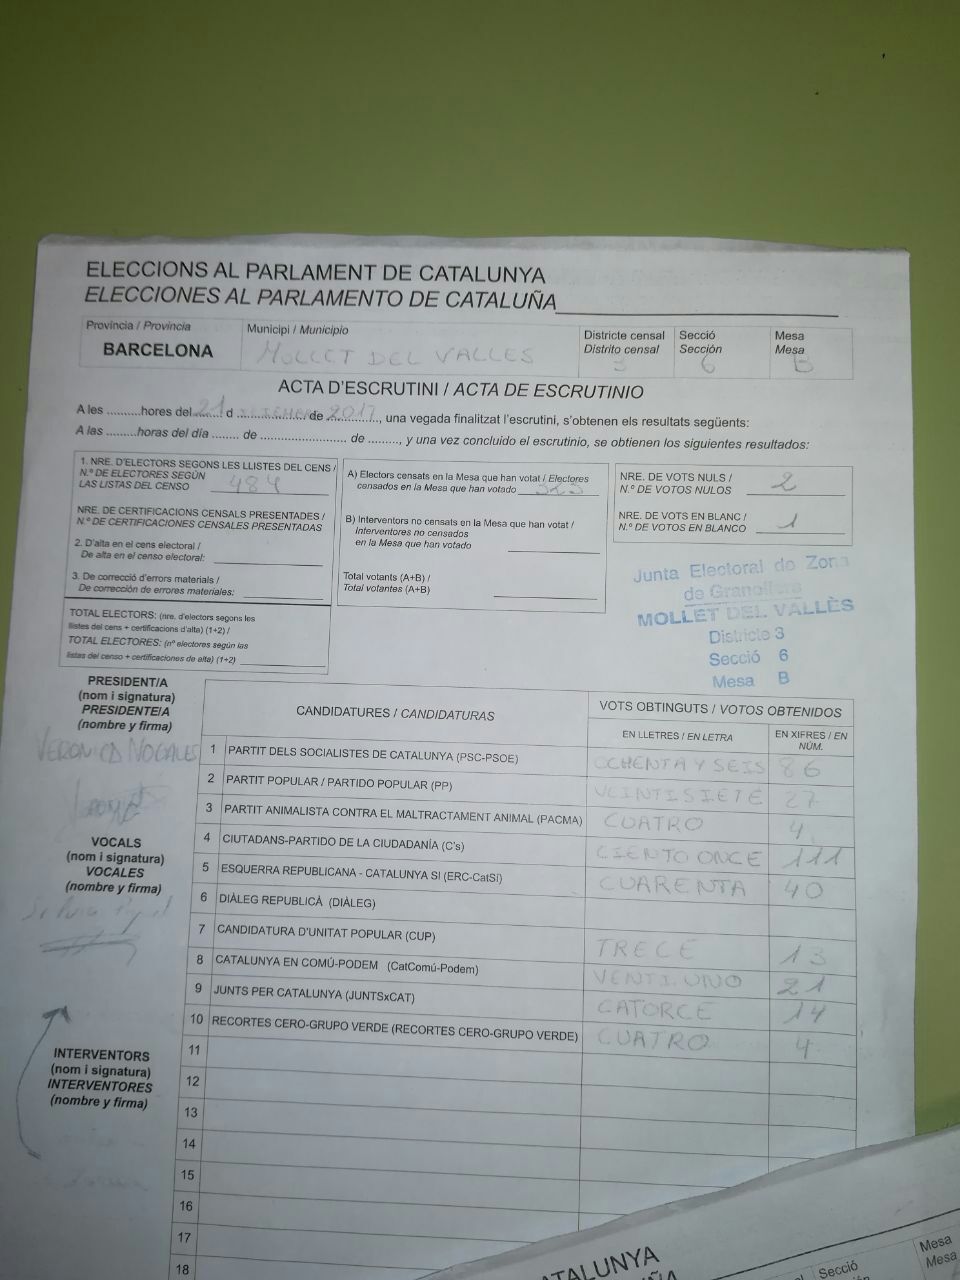 ELECCIONS AL PARLAMENT DE CATALUNYA
ELECCIONES AL PARLAMENTO DE CATALUÑA
Provincia / Provincia
BARCELONA
Municipi / Municipio
MOLLET DEL VALLES
Districte censal
Distrito censal
3
Secció
Sección
6
Mesa
Mesa
B
ACTA D'ESCRUTINI / ACTA DE ESCRUTINIO
A les ..........hores del 21 d ............ de 2017, una vegada finalitzat l'escrutini, s'obtenen els resultats següents:
A las .........horas del día ........ de ......................... de ........., y una vez concluido el escrutinio, se obtienen los siguientes resultados:
1. NRE. D'ELECTORS SEGONS LES LLISTES DEL CENS /
N.º DE ELECTORES SEGÚN
LAS LISTAS DEL CENSO 484
NRE. DE CERTIFICACIONS CENSALS PRESENTADES /
N.º DE CERTIFICACIONES CENSALES PRESENTADAS
2. D'alta en el cens electoral /
De alta en el censo electoral:
3. De correcció d'errors materials /
De corrección de errores materiales:
TOTAL ELECTORS: (nre. d'electors segons les
llistes del cens + certificacions d'alta) (1+2) /
TOTAL ELECTORES: (nº electores según las
listas del censo + certificaciones de alta) (1+2)
A) Electors censats en la Mesa que han votat / Electores
censados en la Mesa que han votado 323
B) Interventors no censats en la Mesa que han votat /
Interventores no censados
en la Mesa que han votado
Total votants (A+B) /
Total votantes (A+B)
NRE. DE VOTS NULS /
N.º DE VOTOS NULOS 2
NRE. DE VOTS EN BLANC /
N.º DE VOTOS EN BLANCO 1
Junta Electoral de Zona
de Granollers
MOLLET DEL VALLÈS
Districte 3
Secció 6
Mesa B
PRESIDENT/A
(nom i signatura)
PRESIDENTE/A
(nombre y firma)
VERONICA NOGALES
VOCALS
(nom i signatura)
VOCALES
(nombre y firma)
INTERVENTORS
(nom i signatura)
INTERVENTORES
(nombre y firma)
CANDIDATURES / CANDIDATURAS
VOTS OBTINGUTS / VOTOS OBTENIDOS
EN LLETRES / EN LETRA
EN XIFRES / EN NÚM.
1 PARTIT DELS SOCIALISTES DE CATALUNYA (PSC-PSOE) OCHENTA Y SEIS 86
2 PARTIT POPULAR / PARTIDO POPULAR (PP) VEINTISIETE 27
3 PARTIT ANIMALISTA CONTRA EL MALTRACTAMENT ANIMAL (PACMA) CUATRO 4
4 CIUTADANS-PARTIDO DE LA CIUDADANÍA (C's) CIENTO ONCE 111
5 ESQUERRA REPUBLICANA - CATALUNYA SI (ERC-CatSí) CUARENTA 40
6 DIÀLEG REPUBLICÀ (DIÀLEG)
7 CANDIDATURA D'UNITAT POPULAR (CUP) TRECE 13
8 CATALUNYA EN COMÚ-PODEM (CatComú-Podem) VENTIUNO 21
9 JUNTS PER CATALUNYA (JUNTSxCAT) CATORCE 14
10 RECORTES CERO-GRUPO VERDE (RECORTES CERO-GRUPO VERDE) CUATRO 4
11
12
13
14
15
16
17
18
CATALUNYA
CATALUÑA
Secció
Mesa
Mesa